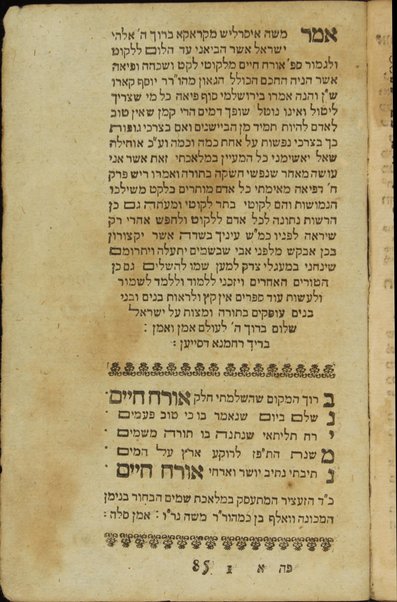 אמר משה איסרליש מקראקא ברוך ה' אלהי
ישראל אשר הביאני עד הלום ללקוט
ולגמור ספ' אורח חיים מלקוטי לקט ושכחה ופיאה
אשר הניח החכם הכולל הגאון מהור"ר יוסף קארו
ש"ן והנה אמרו בירושלמי סוף פיאה כל מי שצריך
ליטול ואינו נוטל שופך דמים הרי קמן שאין טוב
לאדם להיות תמיד מן הביישנים ואם בצרכי גופות
כך בצרכי נפשות על אחת כמה וכמה וע"כ אוחילה
שאל יאשימני כל המעיין במלאכתי זאת אשר אני
עושה מאחר שנפשי חשקה בתורה ואמרו ריש פרק
ח' דפיאה מאימתי כל אדם מותרים בלקט משילכו
הנמושות והם לקוטי בתר לקוטי ומעתה גם כן
הרשות נתונה לכל אדם ללקוט ולחפש אחרי רק
שיראה לפניו כמ"ש עיניך בשדה אשר יקצורון
בכן אבקש מלפני אבי שבשמים יתעלה ויתרומם
שינחני במעגלי צדק למען שמו להשלים גם כן
הטורים האחרים ויזכני ללמוד וללמד לשמור
ולעשות עוד ספרים אין קץ ולראות בנים ובני
בנים עוסקים בתורה ומצות על ישראל
שלום ברוך ה' לעולם אמן ואמן :
בריך רחמנא דסייען :
ברוך המקום שהשלמתי חלק אורח חיים
נשלם ביום שנאמר בו כי טוב פעמים
ירח תליתאי שנתנה בו תורה משמים
משנת הת"פז לרוקע ארץ על המים
נתיבתי נתיב יושר וארחי אורח חיים
כ"ד הזעציר המתעסק במלאכת שמים הבחור בנימן
המכונה וואלף בן כמהור"ר משה נר"ו : אמן סלה :
פה א 1 85